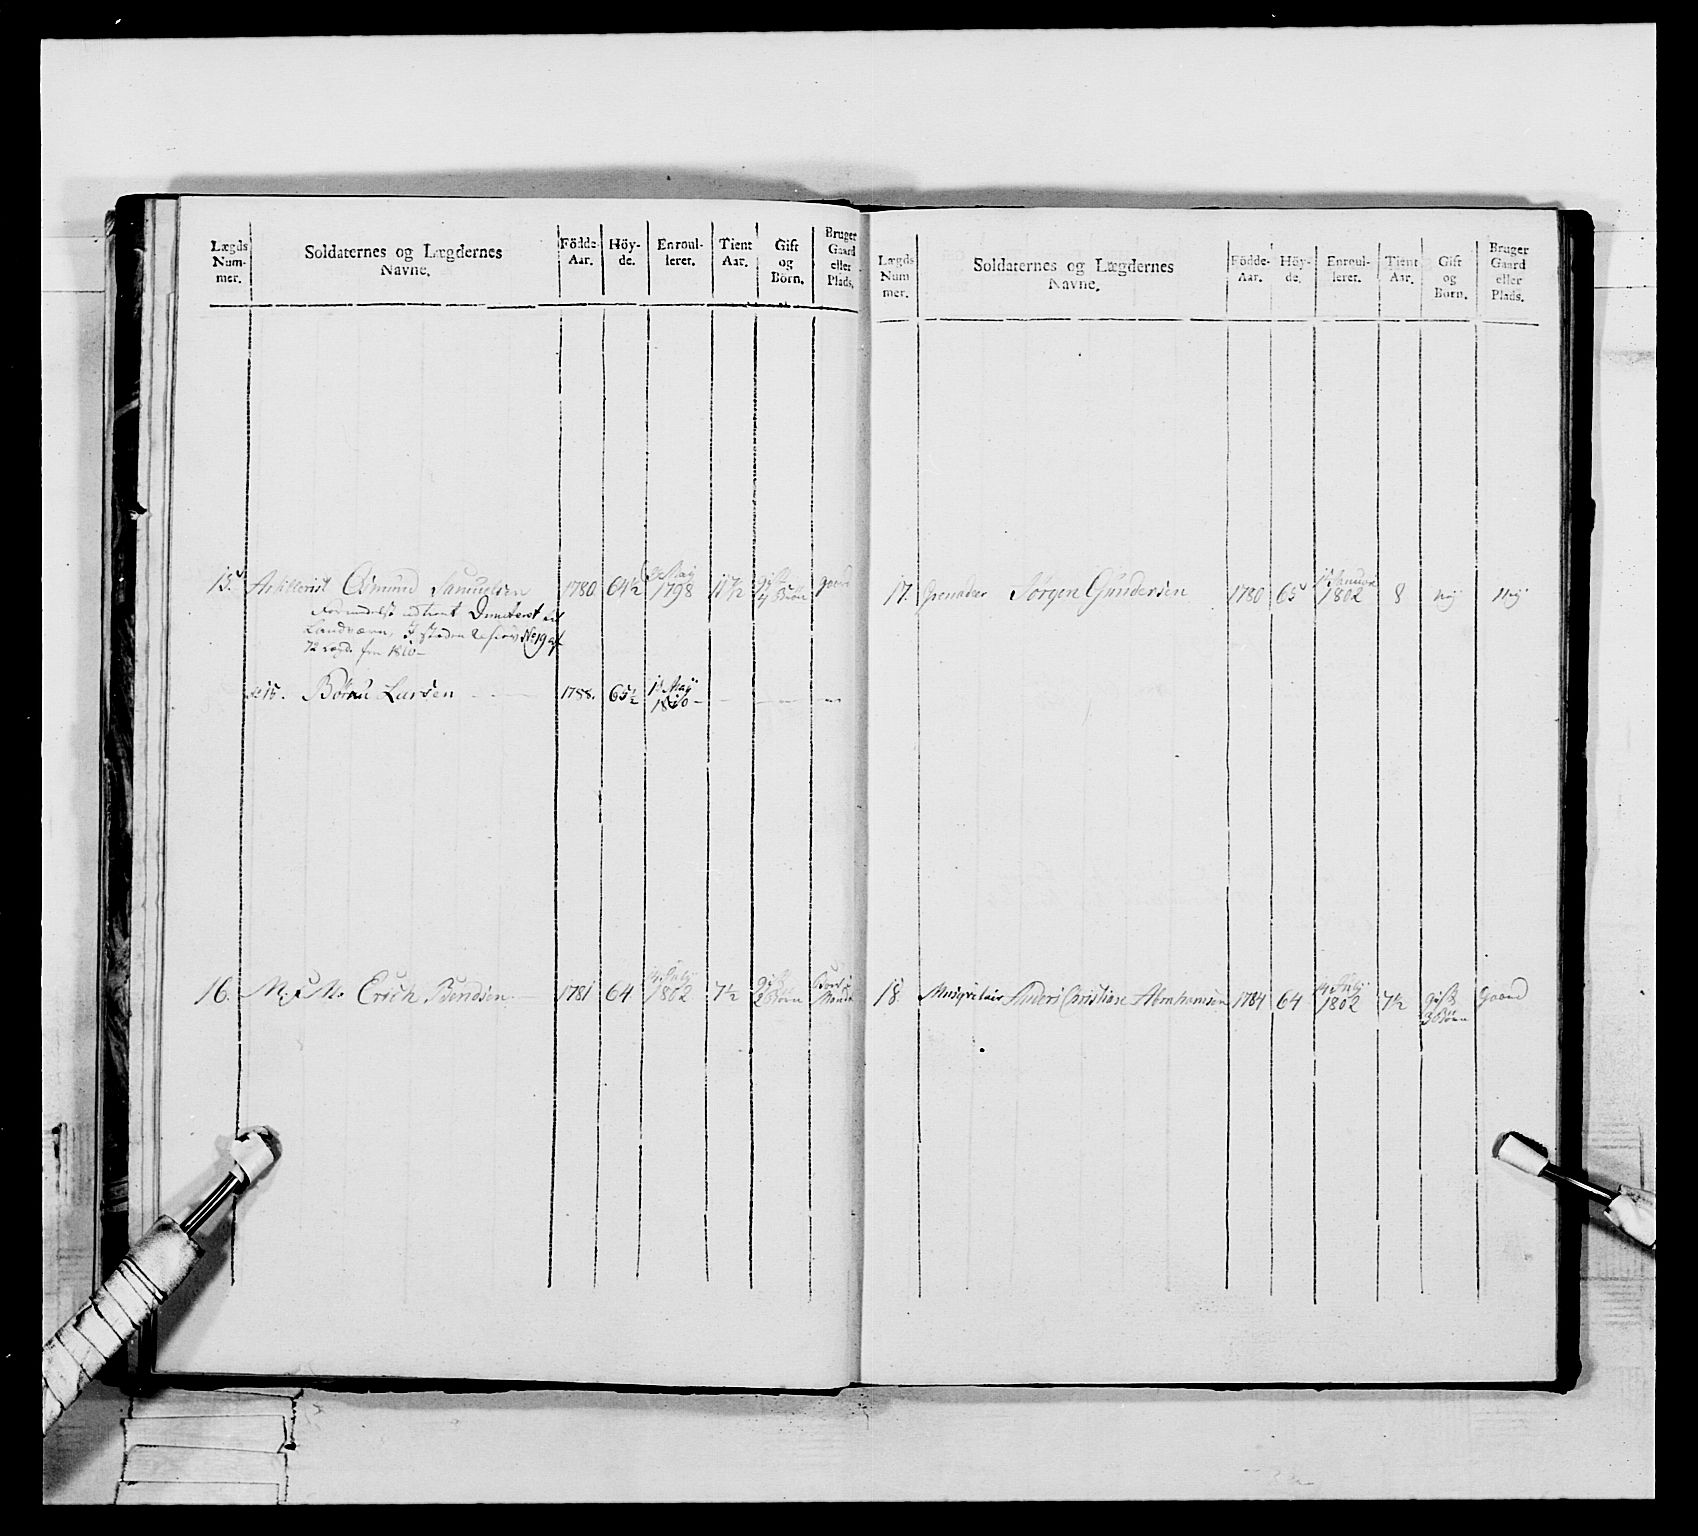 Lægds Num- mer.
Soldaternes og Lægdernes Navne.
Födde- Aar.
Höy- de.
Enroul- leret.
Tient Aar.
Gift og Börn.
Bruger Gaard eller Plads.
15. Artillerist Asmund Samuelsen 1780 64½ May 1798 11½ gift 4 Börn gaard
Landværn,
fra 1810
15. Larsen 1788. 65½ 1 May 1810
16. Erich Bendsen 1781 64 14 July 1802 7½ gift 2 Börn
Lægds Num mer.
Soldaternes og Lægdernes Navne.
Födde- Aar.
Höy- de.
Enroul- leret.
Tient Aar.
Gift og Börn.
Bruger Gaard eller Plads.
17. Grenadeer Jørgen Gundersen 1780 65 1 Januar 1802 8 Nej Nej
18. Musqueteir Anders Christian Abrahamsen 1784 64 14 July 1802 7½ gift 3 Börn Gaard